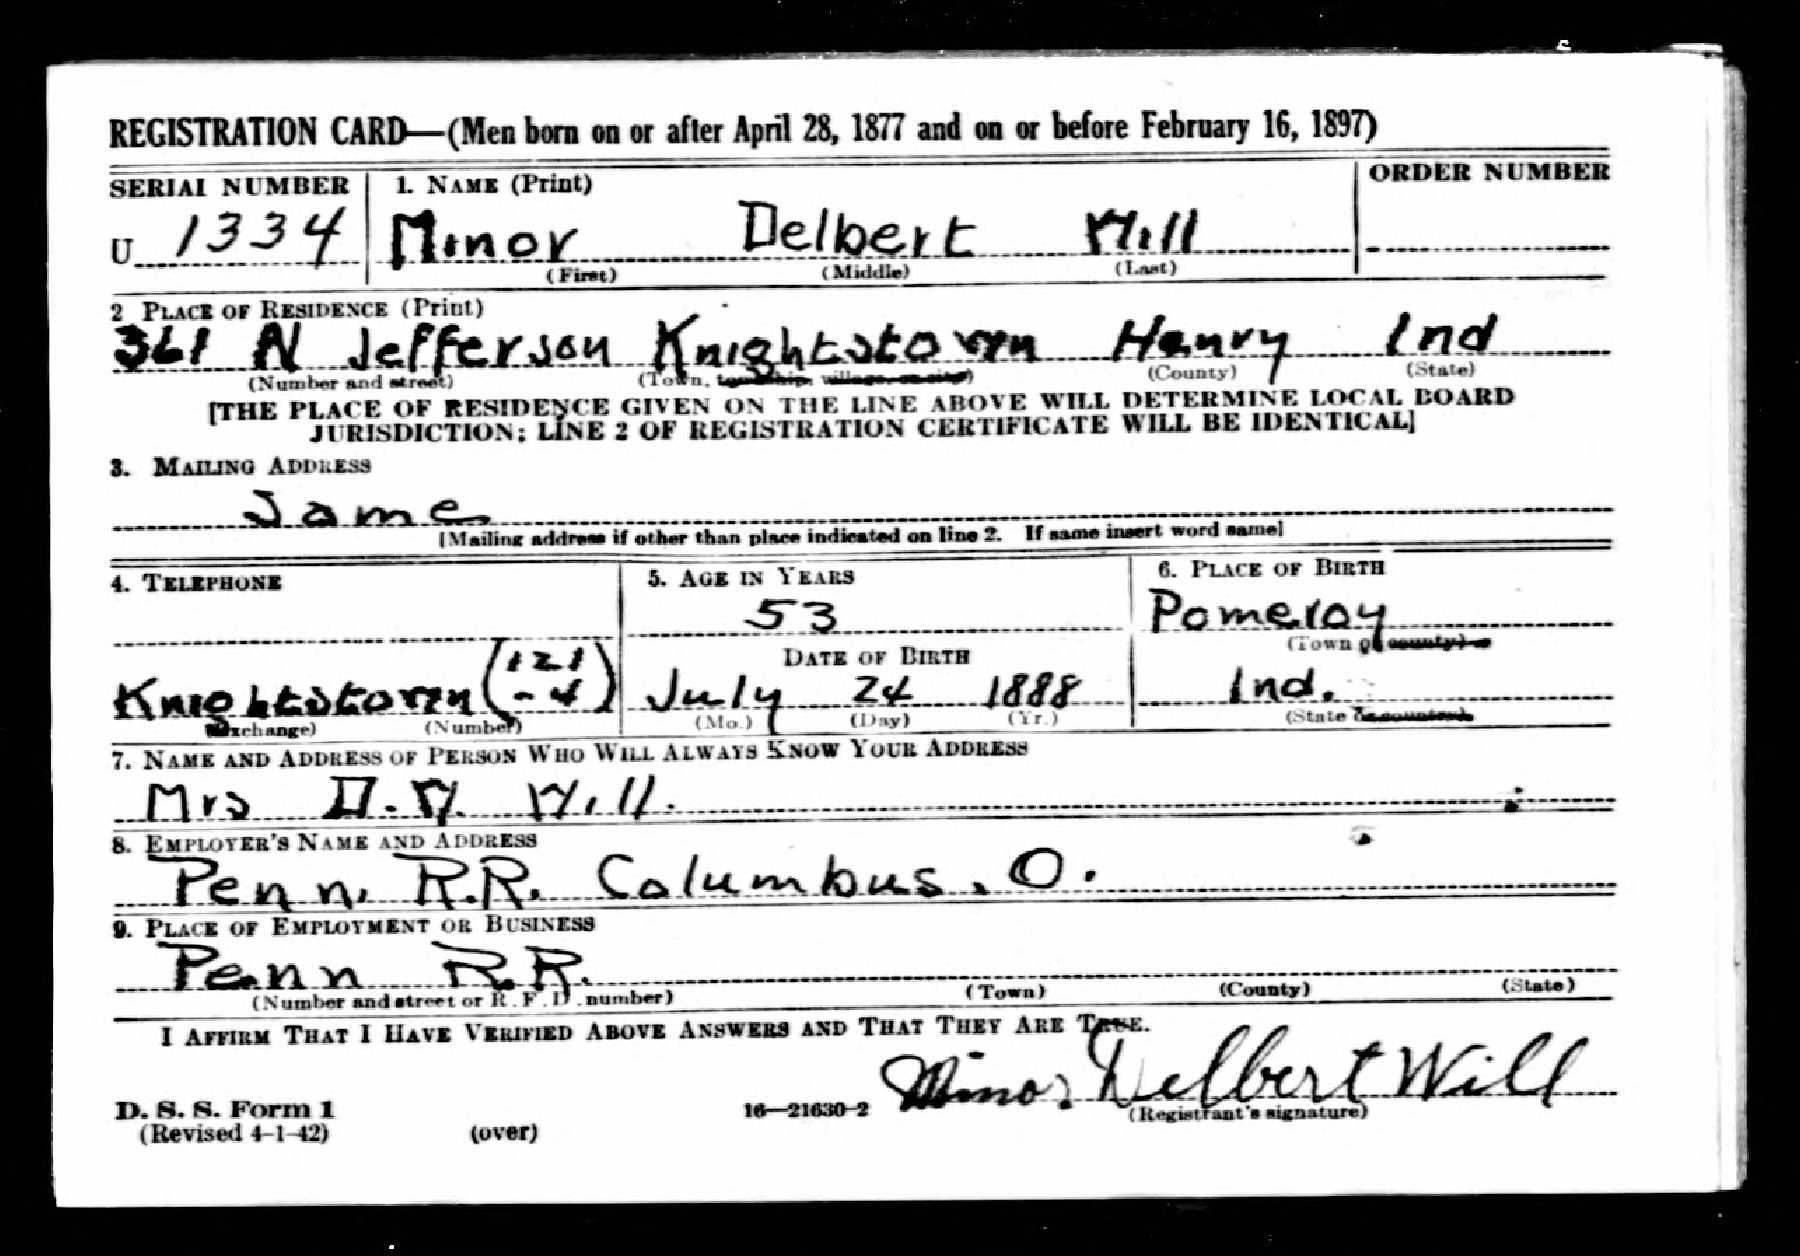 REGISTRATION CARD—(Men born on or after April 28, 1877 and on or before February 16, 1897)
SERIAL NUMBER 1. NAME (Print) ORDER NUMBER
U 1334 Minor Delbert Will
(First) (Middle) (Last)
2 PLACE OF RESIDENCE (Print)
361 N Jefferson Knightstown Henry Ind
(Number and street) (Town, township, village, or city) (County) (State)
[THE PLACE OF RESIDENCE GIVEN ON THE LINE ABOVE WILL DETERMINE LOCAL BOARD
JURISDICTION; LINE 2 OF REGISTRATION CERTIFICATE WILL BE IDENTICAL]
3. MAILING ADDRESS
Same
[Mailing address if other than place indicated on line 2. If same insert word same]
4. TELEPHONE 5. AGE IN YEARS 6. PLACE OF BIRTH
53 Pomeroy
(Town or county)
DATE OF BIRTH
Knightstown (121 -4) July 24 1888 Ind.
(Exchange) (Number) (Mo.) (Day) (Yr.) (State or country)
7. NAME AND ADDRESS OF PERSON WHO WILL ALWAYS KNOW YOUR ADDRESS
Mrs Will.
8. EMPLOYER'S NAME AND ADDRESS
Penn. R.R. Columbus, O.
9. PLACE OF EMPLOYMENT OR BUSINESS
Penn R.R.
(Number and street or R. F. D. number) (Town) (County) (State)
I AFFIRM THAT I HAVE VERIFIED ABOVE ANSWERS AND THAT THEY ARE TRUE.
Minor Delbert Will
D. S. S. Form 1 16—21630-2 (Registrant's signature)
(Revised 4-1-42) (over)